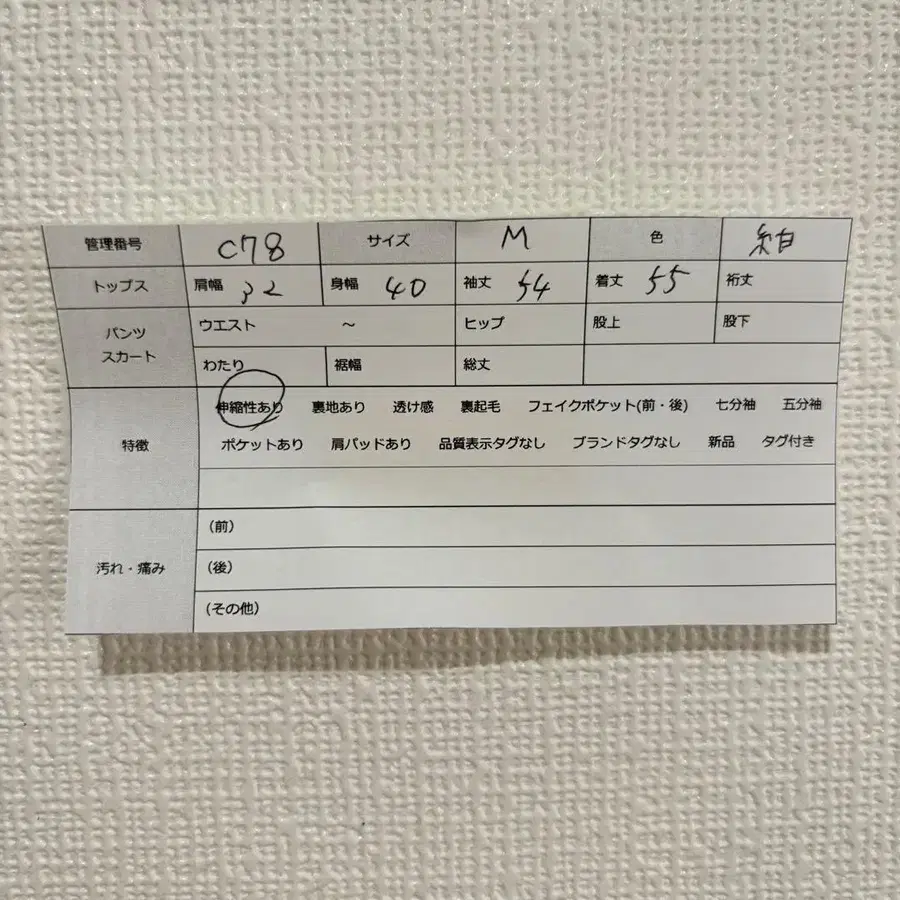 管理番号 C78 サイズ M 色 紺
トップス 肩幅 32 身幅 40 袖丈 54 着丈 55 裄丈
パンツ スカート ウエスト ～ ヒップ 股上 股下
わたり 裾幅 総丈
特徴 伸縮性あり 裏地あり 透け感 裏起毛 フェイクポケット(前・後) 七分袖 五分袖
ポケットあり 肩パッドあり 品質表示タグなし ブランドタグなし 新品 タグ付き
汚れ・痛み (前)
(後)
(その他)